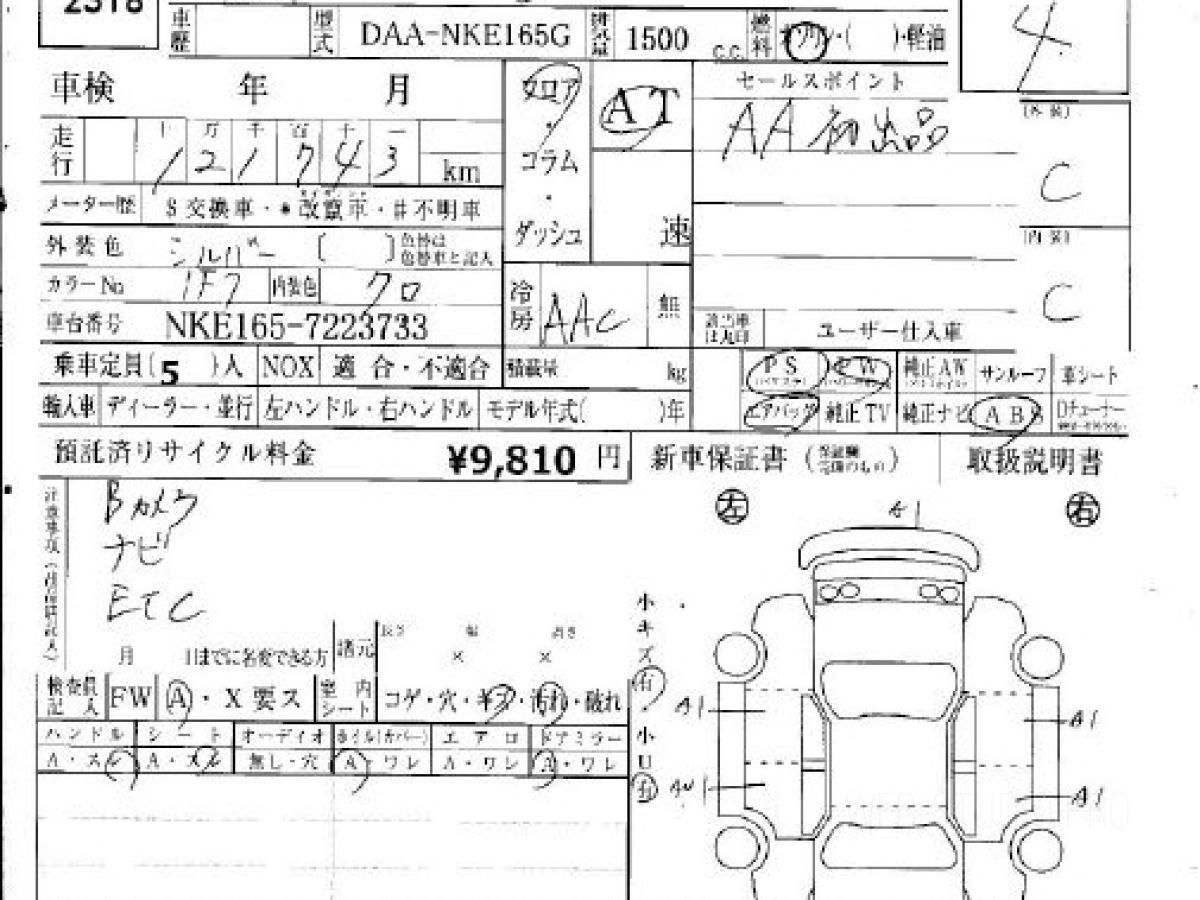 2318
車歴
型式 DAA-NKE165G
排気量 1500 c.c.
燃料 ガソリン・( )・軽油
4
車検 年 月
フロア・コラム・ダッシュ
AT
速
セールスポイント
AA初出品
走行 十 万 千 百 十 一
1 2 1 7 4 3 km
メーター歴 $交換車・*改竄車・#不明車
外装色 シルバー ( ) 色替は色替車と記入
カラーNo 1F7 内装色 クロ
車台番号 NKE165-7223733
冷房 AAC 無
(外装)
C
(内装)
C
該当車は丸印 ユーザー仕入車
乗車定員(5)人 NOX 適合・不適合 積載量 kg
PS PW 純正AW サンルーフ 革シート
輸入車 ディーラー・並行 左ハンドル・右ハンドル モデル年式( )年
エアバッグ 純正TV 純正ナビ ABS Dチューナー
預託済リサイクル料金 ¥9,810 円
新車保証書 (保証欄記載のもの) 取扱説明書
注意事項
Bカメラ
ナビ
ETC
月 日までに名変できる方
諸元 長さ 幅 高さ
× ×
検査員記入 FW A・X要ス
室内シート コゲ・穴・キズ・汚れ・破れ
ハンドル シート オーディオ ホイル(カバー) エアロ ドアミラー
A・スレ A・スレ 無し・穴 A・ワレ A・ワレ A・ワレ
左 右
小キズ 有・小U 有
A1
A1
A1
A1